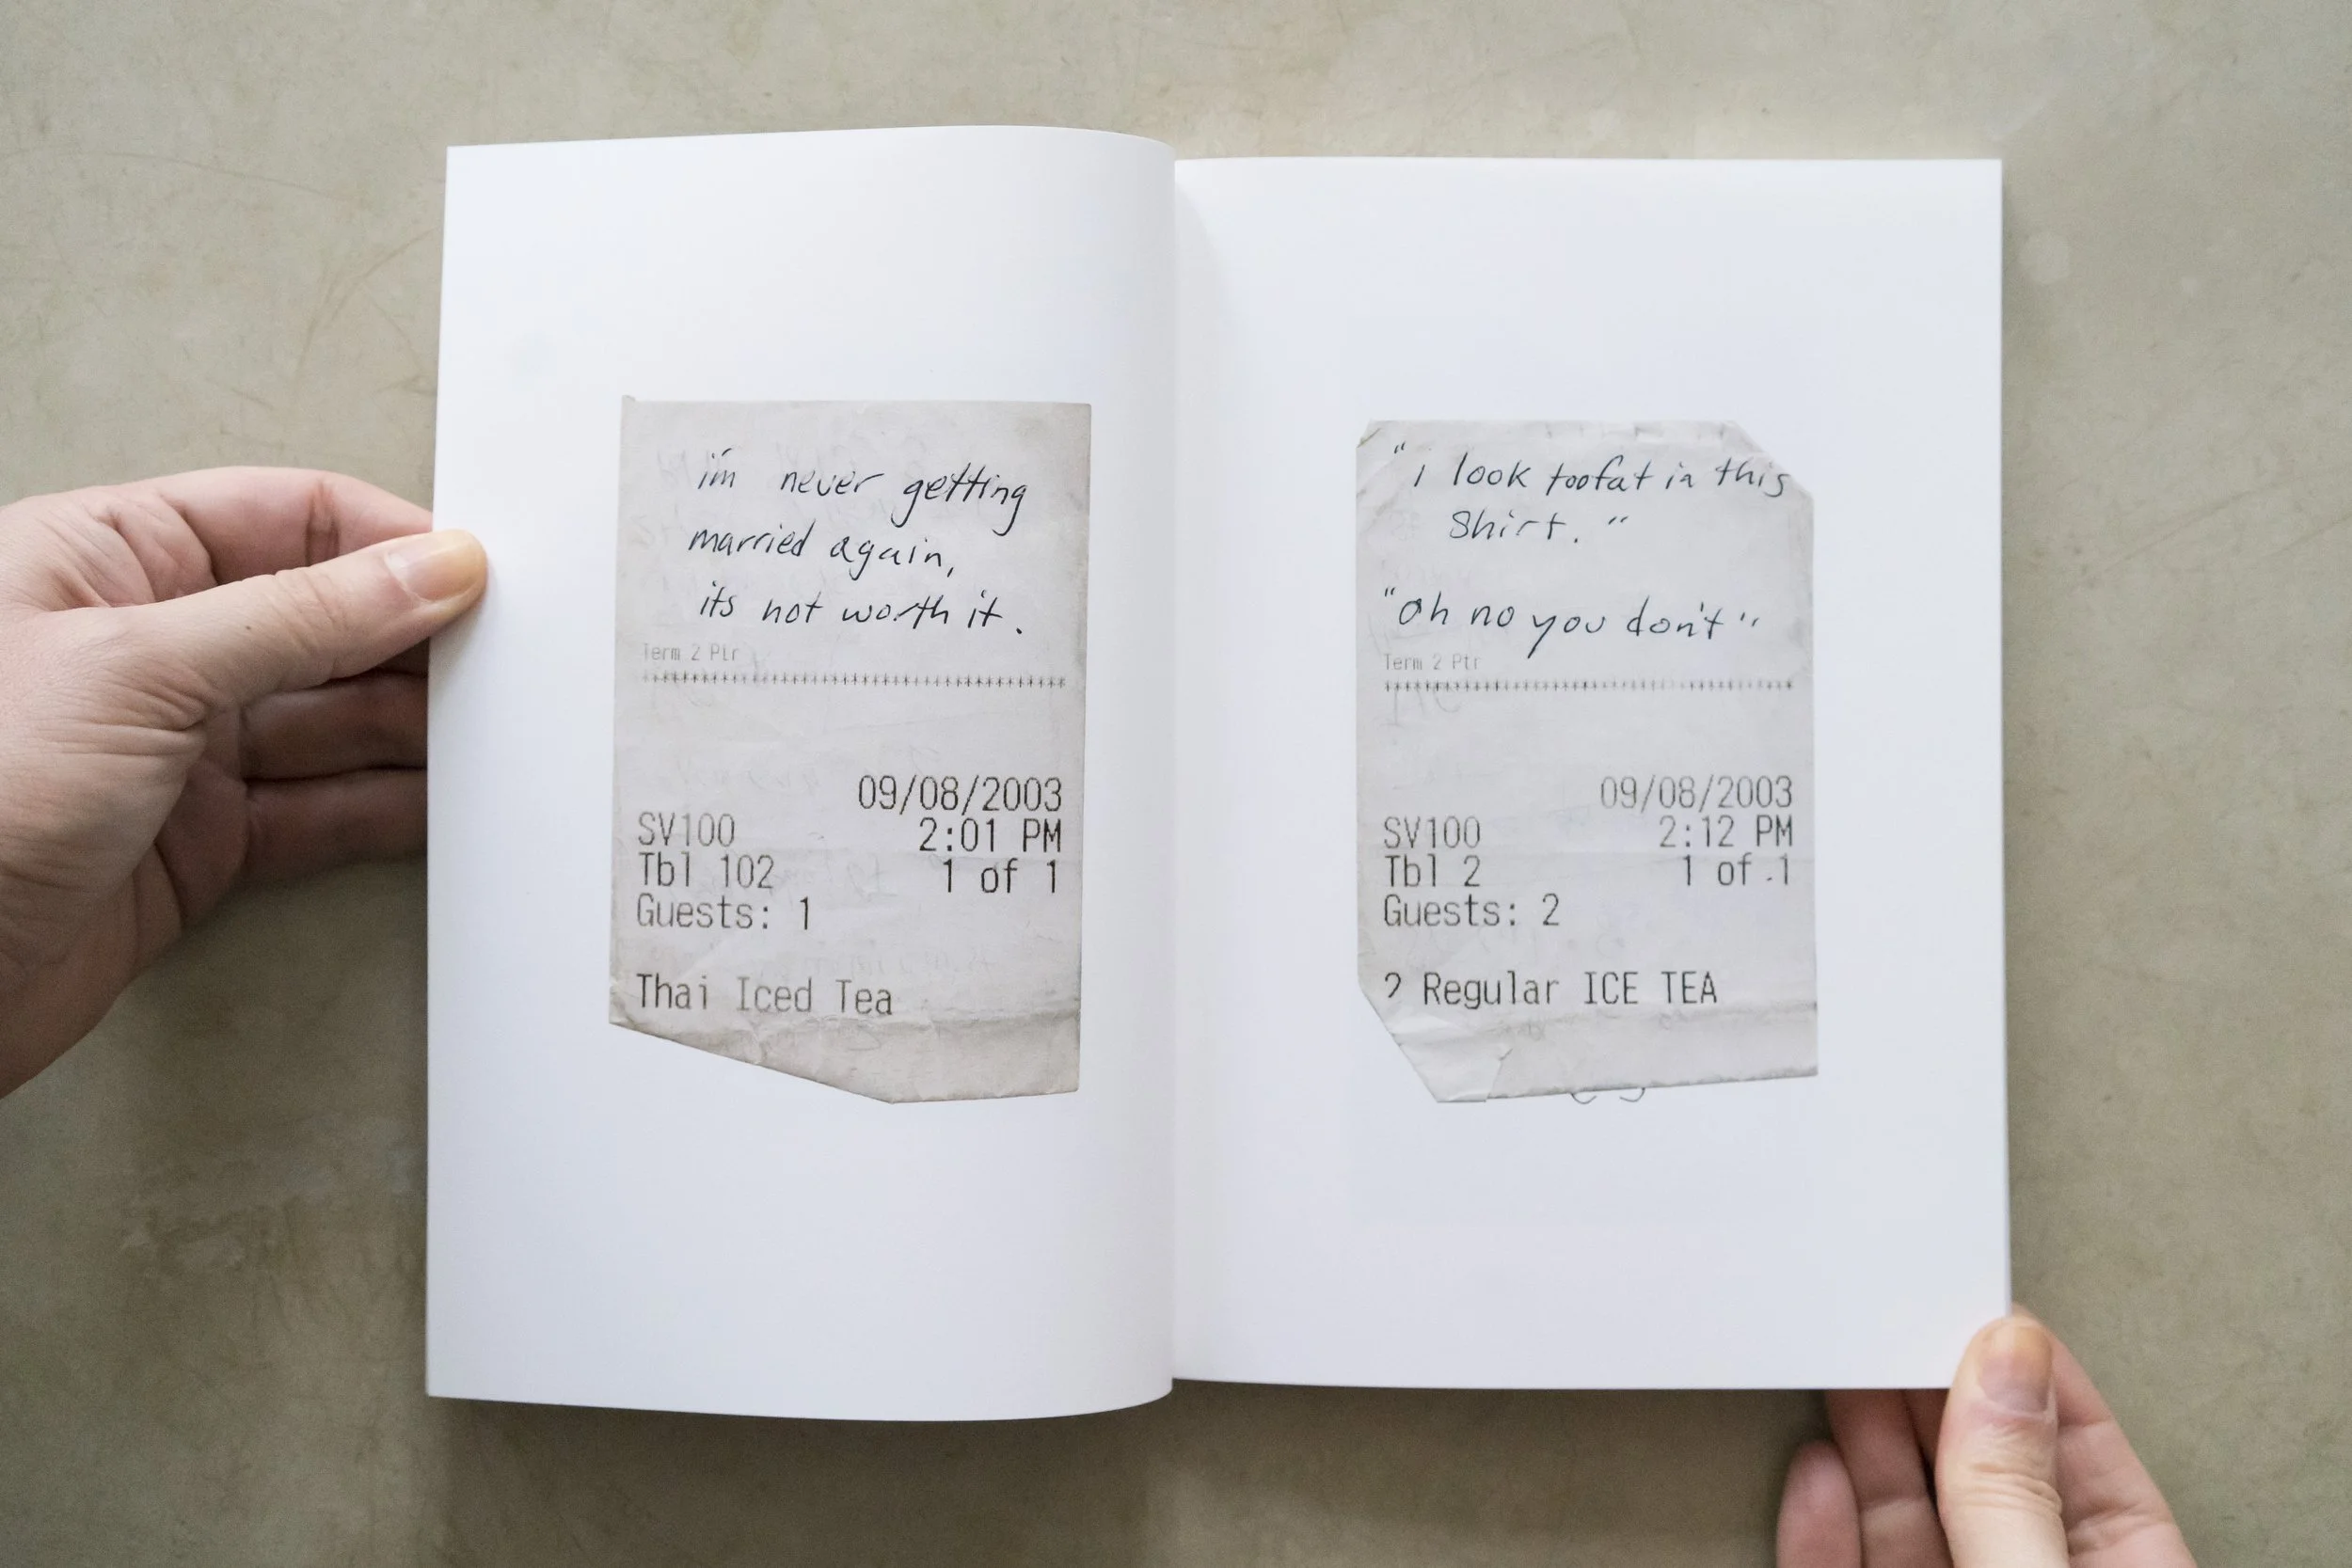 i'm never getting
married again,
its not worth it.
Term 2 Ptr
09/08/2003
SV100 2:01 PM
Tbl 102 1 of 1
Guests: 1
Thai Iced Tea
"i look too fat in this
shirt."
"oh no you don't"
Term 2 Ptr
09/08/2003
SV100 2:12 PM
Tbl 2 1 of 1
Guests: 2
Regular ICE TEA